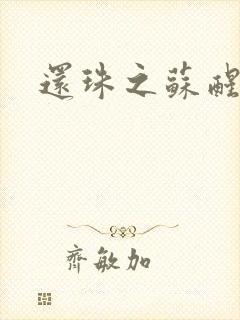 還珠之蘇醒
齊敏加